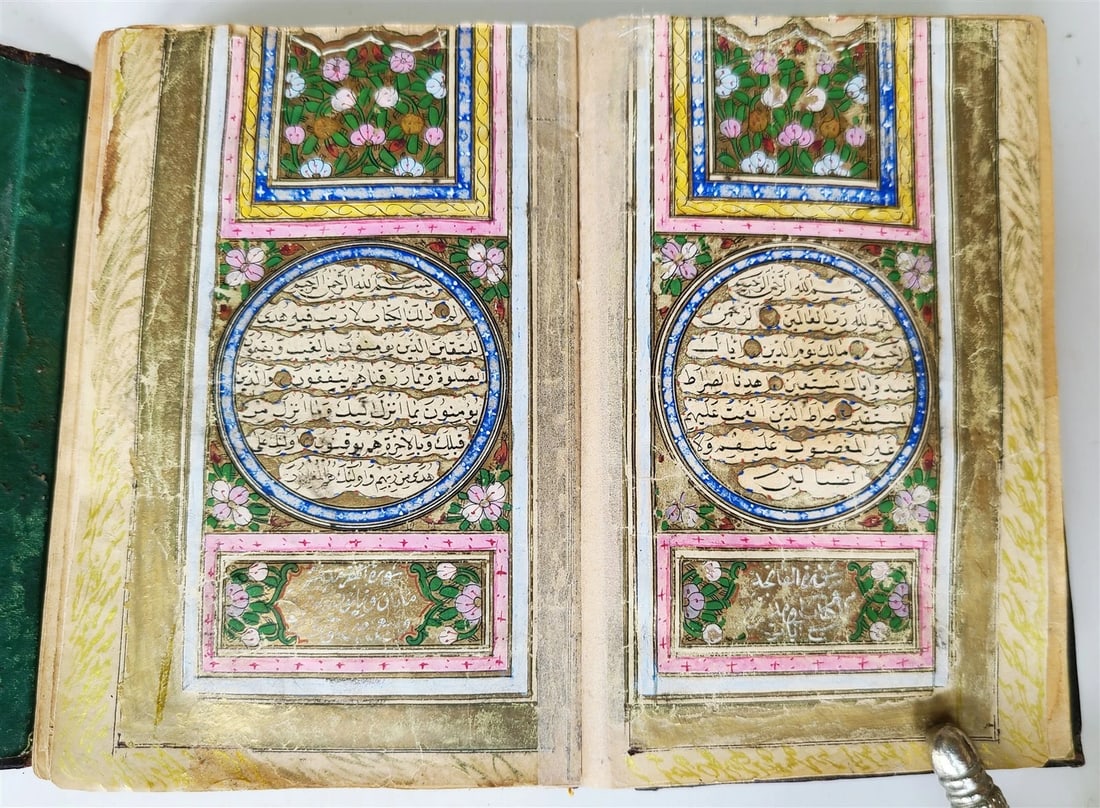 بسم الله الرحمن الرحيم
الحمد لله رب العالمين الرحمن
الرحيم مالك يوم الدين اياك
نعبد واياك نستعين اهدنا الصراط
المستقيم صراط الذين انعمت عليهم
غير المغضوب عليهم ولا
الضالين
سورة الفاتحة
سبع آيات
بسم الله الرحمن الرحيم
الم ذلك الكتاب لا ريب فيه هدى
للمتقين الذين يؤمنون بالغيب ويقيمون
الصلوة ومما رزقناهم ينفقون والذين
يؤمنون بما انزل اليك وما انزل من
قبلك وبالاخرة هم يوقنون اولئك على
هدى من ربهم واولئك هم المفلحون
سورة البقرة